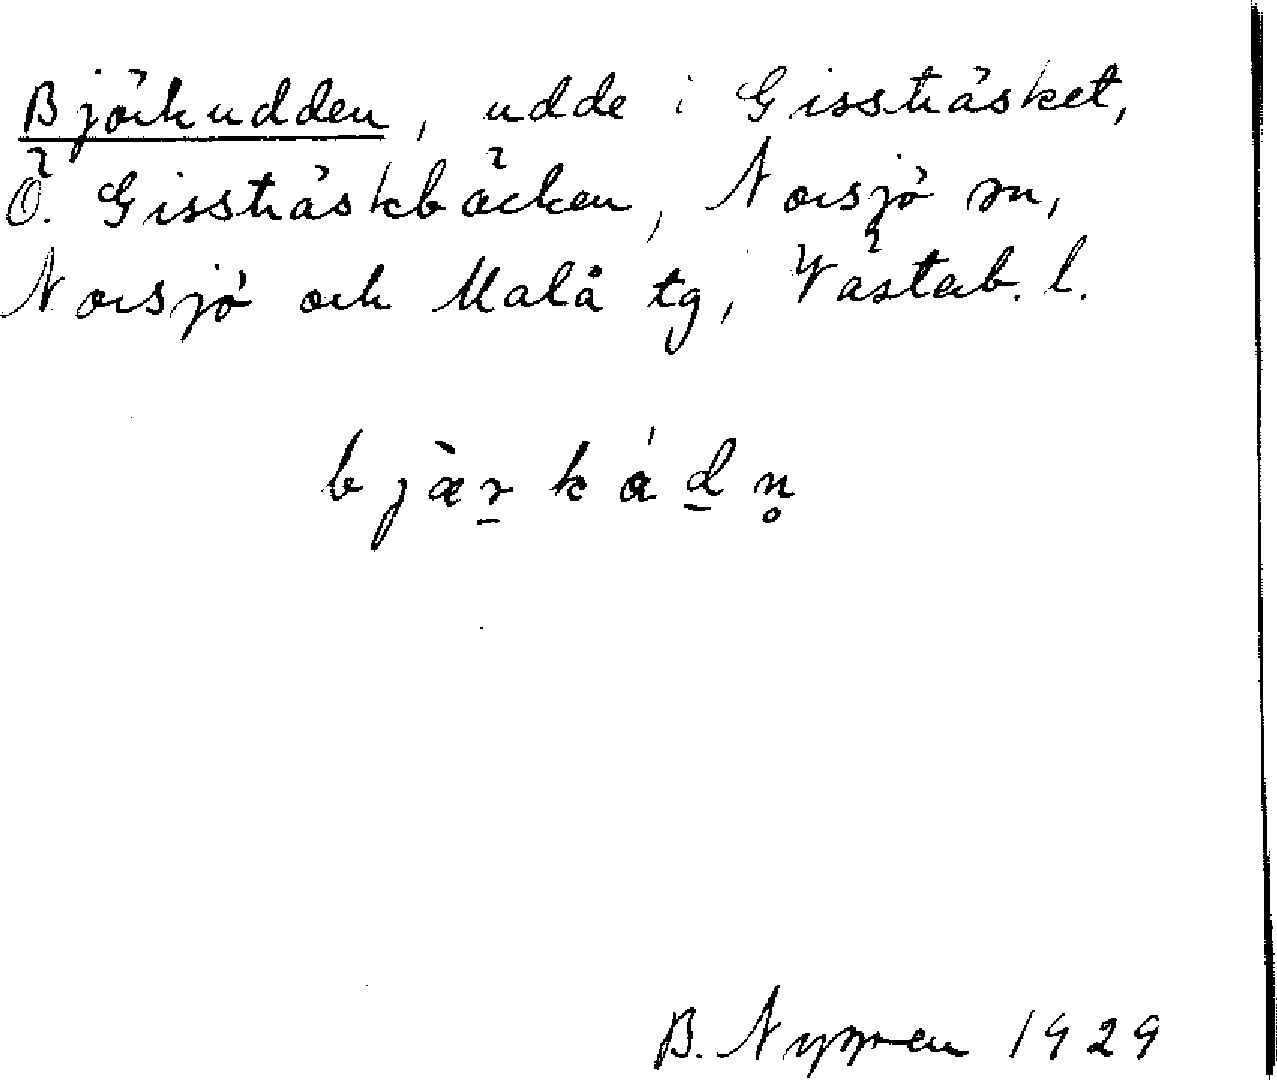 Björkudden, udde i Gissträsket,
Ö. Gissträskbäcken, Norsjö sn,
Norsjö och Malå tg, Västerb. l.
bjæ̀r̠kád̠n̥
B. Nygren 1929